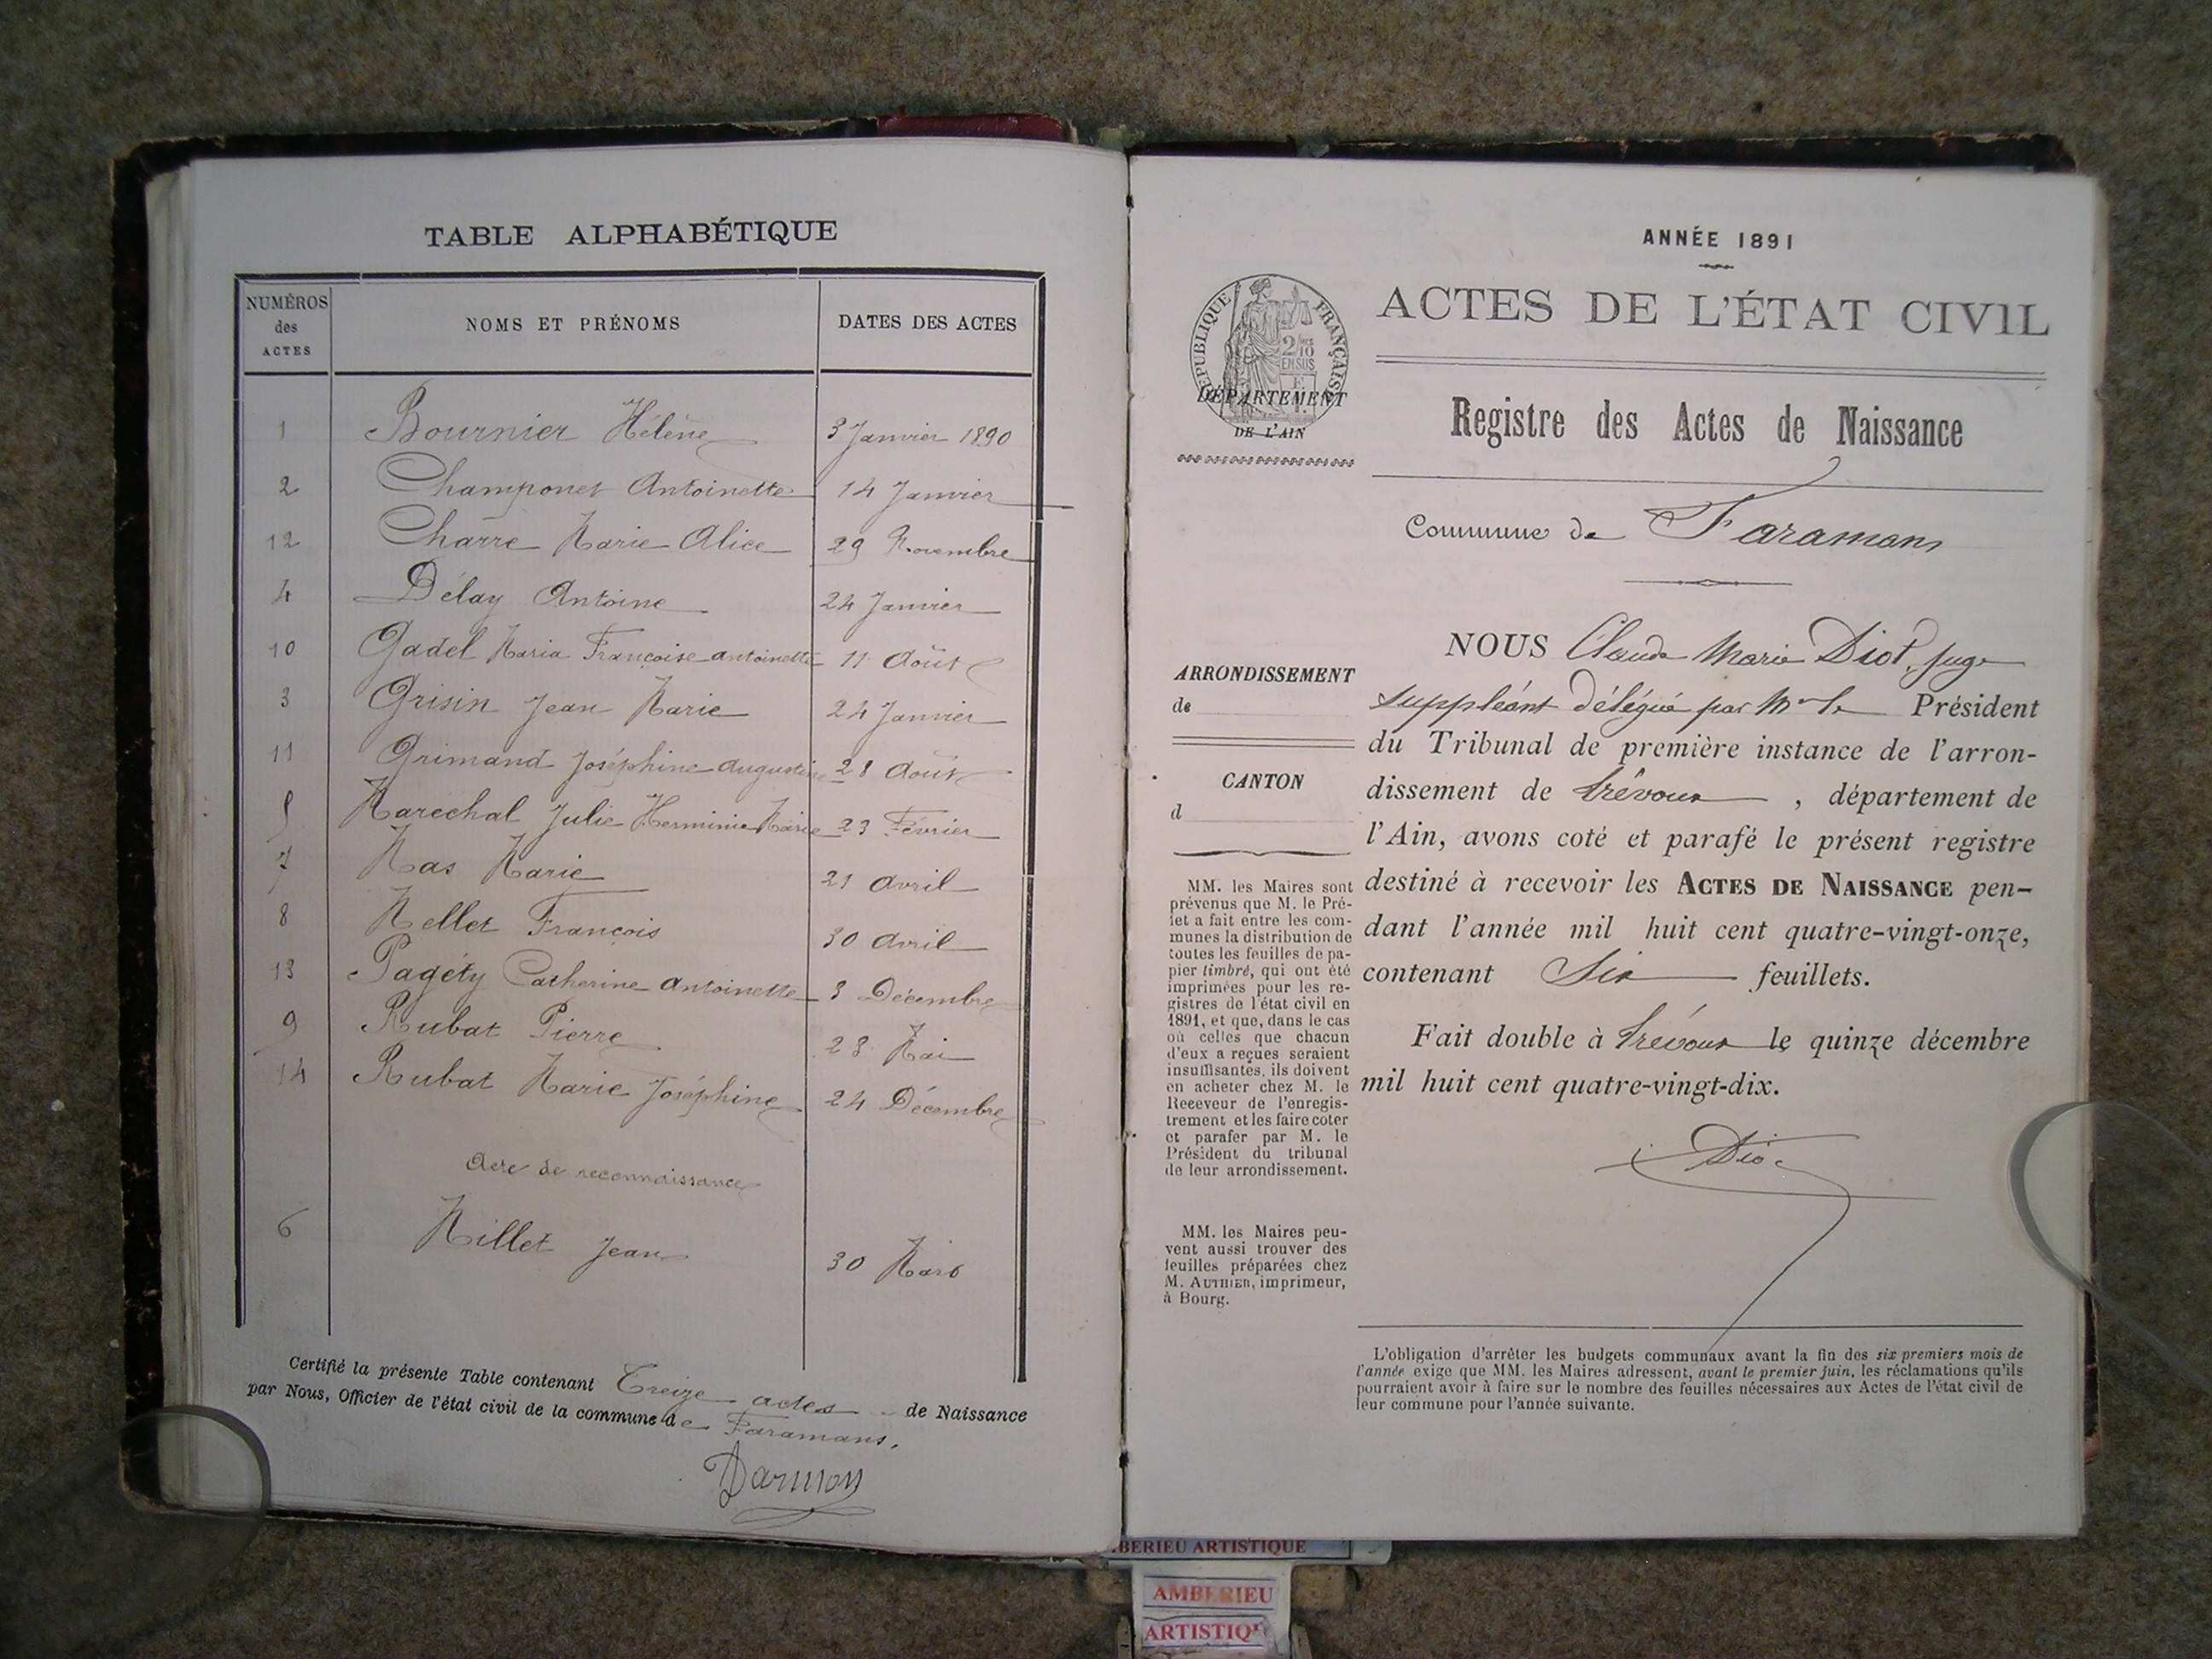 TABLE ALPHABÉTIQUE
NUMÉROS des ACTES
NOMS ET PRÉNOMS
DATES DES ACTES
1 Bournier Hélène 3 Janvier 1890
2 Champonet Antoinette 14 Janvier
12 Charre Marie Alice 29 Novembre
4 Délay Antoine 24 Janvier
10 Gadel Maria Françoise antoinette 11 Août
3 Grisin Jean Marie 24 Janvier
11 Grimand Joséphine augustine 28 Août
5 Maréchal Julie Herminie Marie 23 Février
7 Mas Marie 21 Avril
8 Mellet François 30 Avril
13 Pagéty Catherine Antoinette 3 Décembre
9 Rubat Pierre 28 Mai
14 Rubat Marie Joséphine 24 Décembre
Acte de reconnaissance
6 Millet Jean 30 Mars
Certifié la présente Table contenant Treize actes de Naissance
par Nous, Officier de l'état civil de la commune de Faramans.
Darmon
ANNÉE 1891
RÉPUBLIQUE FRANÇAISE
2 fcs 4/10
EN SUS
DÉPARTEMENT
DE L'AIN
ACTES DE L'ÉTAT CIVIL
Registre des Actes de Naissance
Commune de Faramans
NOUS Claude Marie Diot, juge
suppléant délégué par Mr le Président
du Tribunal de première instance de l'arron-
dissement de Trévoux , département de
l'Ain, avons coté et parafé le présent registre
destiné à recevoir les ACTES DE NAISSANCE pen-
dant l'année mil huit cent quatre-vingt-onze,
contenant Six feuillets.
Fait double à Trévoux le quinze décembre
mil huit cent quatre-vingt-dix.
Diot
ARRONDISSEMENT
de
CANTON
d
MM. les Maires sont
prévenus que M. le Pré-
fet a fait entre les com-
munes la distribution de
toutes les feuilles de pa-
pier timbré, qui ont été
imprimées pour les re-
gistres de l'état civil en
1891, et que, dans le cas
où celles que chacun
d'eux a reçues seraient
insuffisantes, ils doivent
en acheter chez M. le
Receveur de l'enregis-
trement et les faire coter
et parafer par M. le
Président du tribunal
de leur arrondissement.
MM. les Maires peu-
vent aussi trouver des
feuilles préparées chez
M. AUTHIER, imprimeur,
à Bourg.
L'obligation d'arrêter les budgets communaux avant la fin des six premiers mois de
l'année exige que MM. les Maires adressent, avant le premier juin, les réclamations qu'ils
pourraient avoir à faire sur le nombre des feuilles nécessaires aux Actes de l'état civil de
leur commune pour l'année suivante.
BERIEU ARTISTIQUE
AMBERIEU
ARTISTIQ